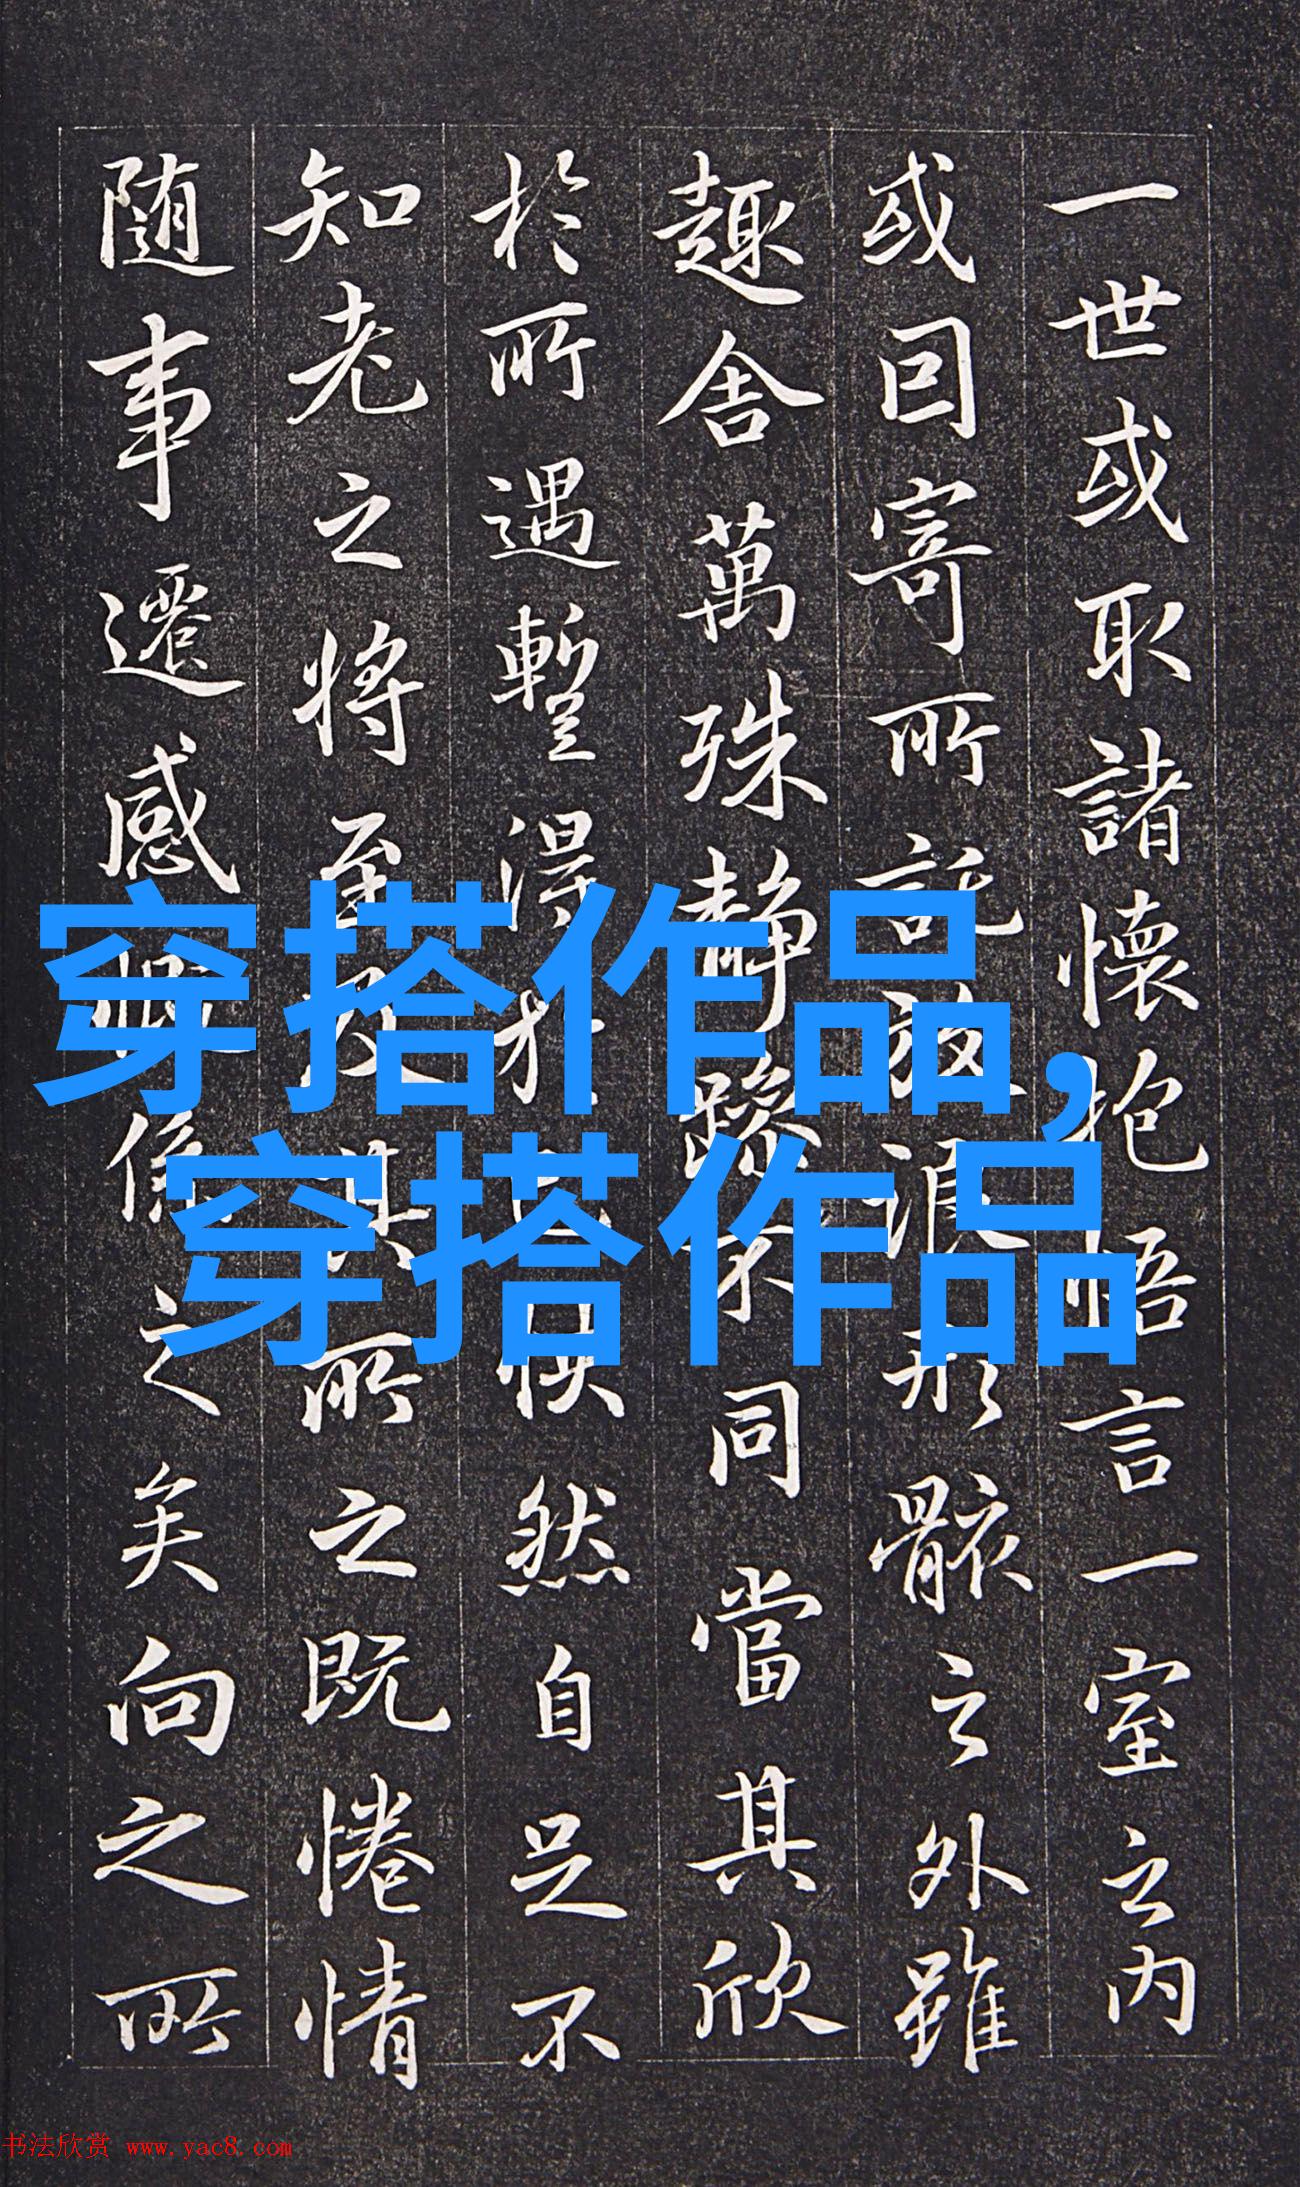 一世或取諸懷抱悟言一室之内
或因寄所託放浪形骸之外雖
趣舍萬殊静躁不同當其欣
於所遇暫得於己怏然自足不
知老之將至及其所之既惓情
随事遷感慨係之矣向之所
穿搭作品,
穿搭作品
书法欣赏 www.yac8.com